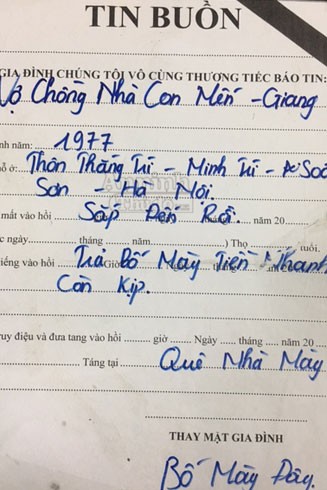 TIN BUỒN
GIA ĐÌNH CHÚNG TÔI VÔ CÙNG THƯƠNG TIẾC BÁO TIN:
Vợ Chồng Nhà Con Mến - Giang
nh năm: 1977
ở: Thôn Thắng Trí - Minh Trí - Sóc
Sơn - Hà Nội
mất vào hồi Sắp Đến Rồi. năm 20
c ngày tháng năm ) Thọ tuổi.
iếng vào hồi Trả Bố Mày Tiền Nhanh
Còn Kịp.
ruy điệu và đưa tang vào hồi giờ Ngày tháng năm 20
Táng tại Quê Nhà Mày
THAY MẶT GIA ĐÌNH
Bố Mày Đây.